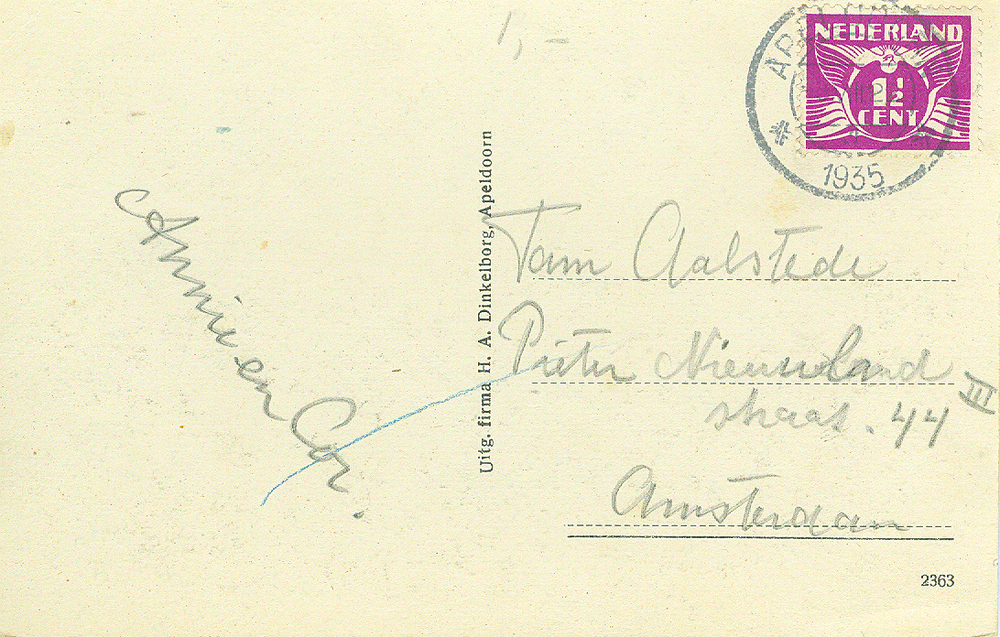 1,-
NEDERLAND
1½
CENT
1935
Annie en Cor.
Uitg. firma H. A. Dinkelborg, Apeldoorn
Fam Aalstede
Pieter Nieuwland
straat. 44 III
Amsterdam
2363